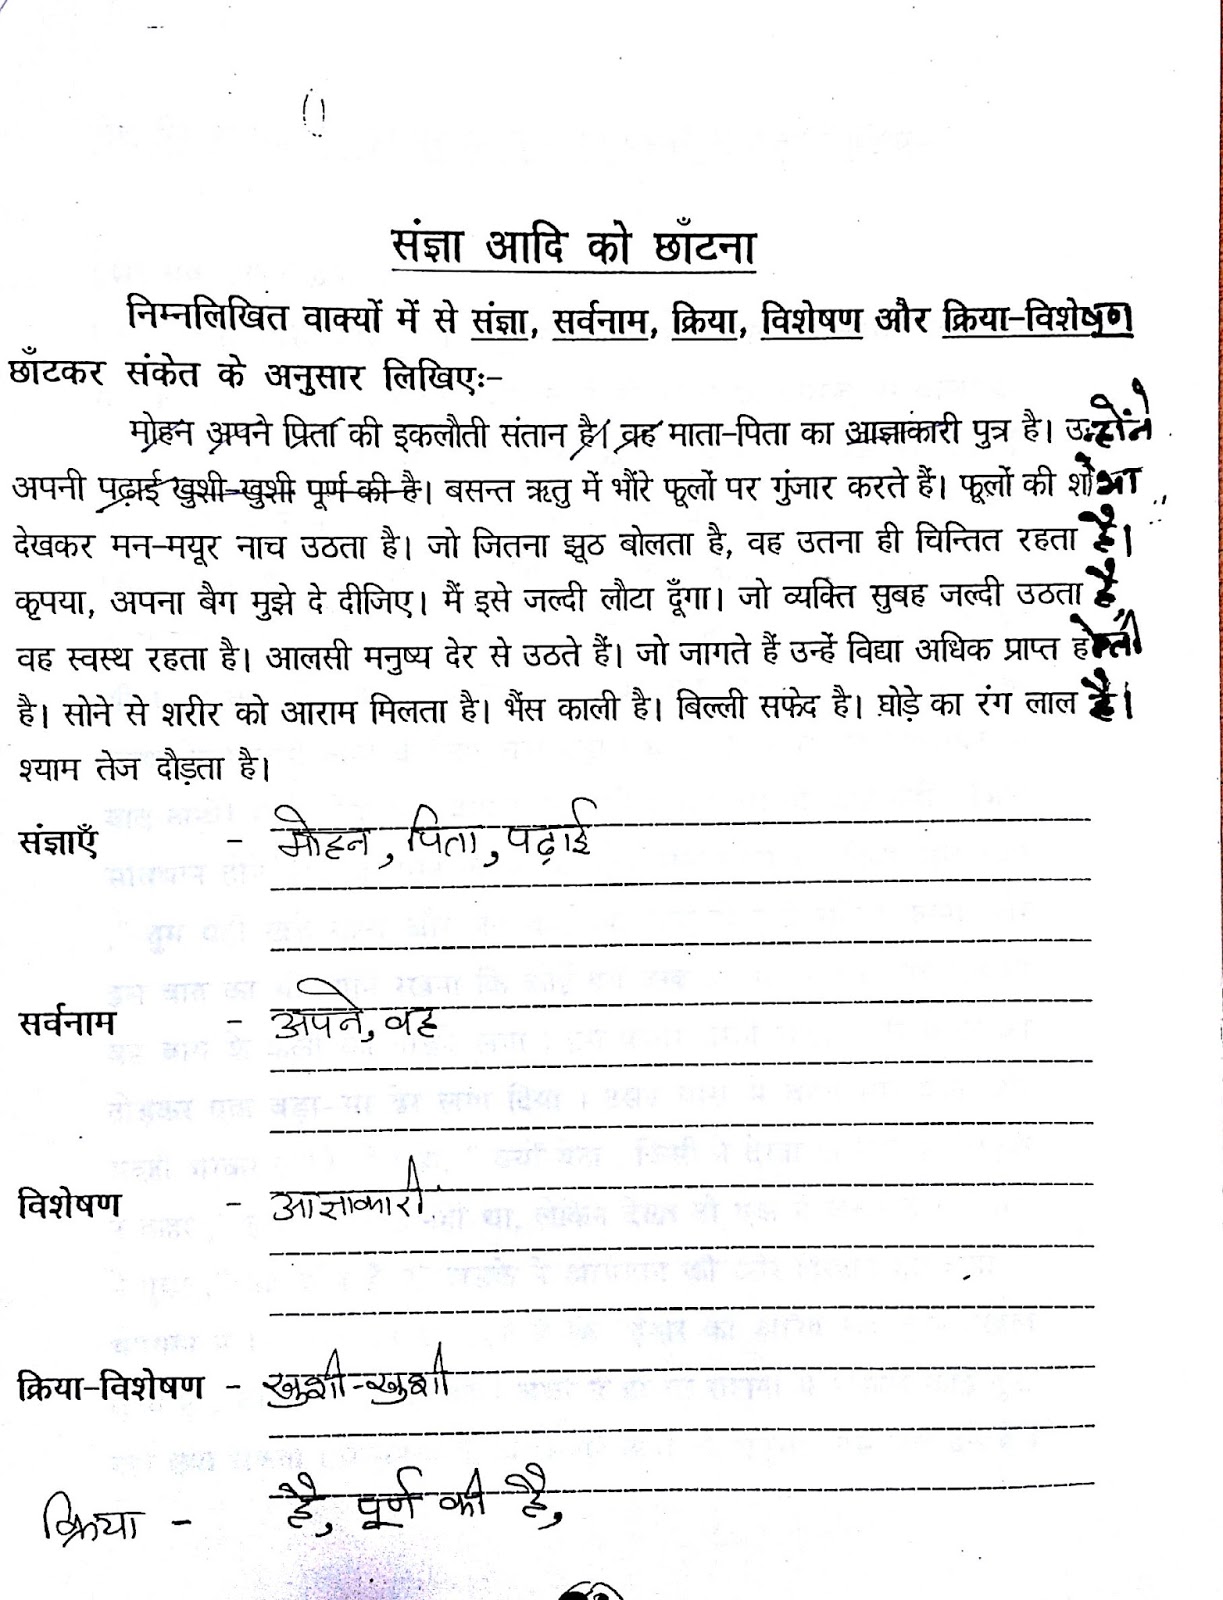 संज्ञा आदि को छाँटना
निम्नलिखित वाक्यों में से संज्ञा, सर्वनाम, क्रिया, विशेषण और क्रिया-विशेषण
छाँटकर संकेत के अनुसार लिखिएः-
मोहन अपने पिता की इकलौती संतान है। वह माता-पिता का आज्ञाकारी पुत्र है। उन्होंने
अपनी पढ़ाई खुशी-खुशी पूर्ण की है। बसन्त ऋतु में भौंरे फूलों पर गुंजार करते हैं। फूलों की शोभा
देखकर मन-मयूर नाच उठता है। जो जितना झूठ बोलता है, वह उतना ही चिन्तित रहता है।
कृपया, अपना बैग मुझे दे दीजिए। मैं इसे जल्दी लौटा दूँगा। जो व्यक्ति सुबह जल्दी उठता है,
वह स्वस्थ रहता है। आलसी मनुष्य देर से उठते हैं। जो जागते हैं उन्हें विद्या अधिक प्राप्त होती
है। सोने से शरीर को आराम मिलता है। भैंस काली है। बिल्ली सफेद है। घ़ोड़े का रंग लाल है।
श्याम तेज दौड़ता है।
संज्ञाएँ - मोहन, पिता, पढ़ाई
सर्वनाम - अपने, वह
विशेषण - आज्ञाकारी
क्रिया-विशेषण - खुशी-खुशी
क्रिया - है, पूर्ण की है,